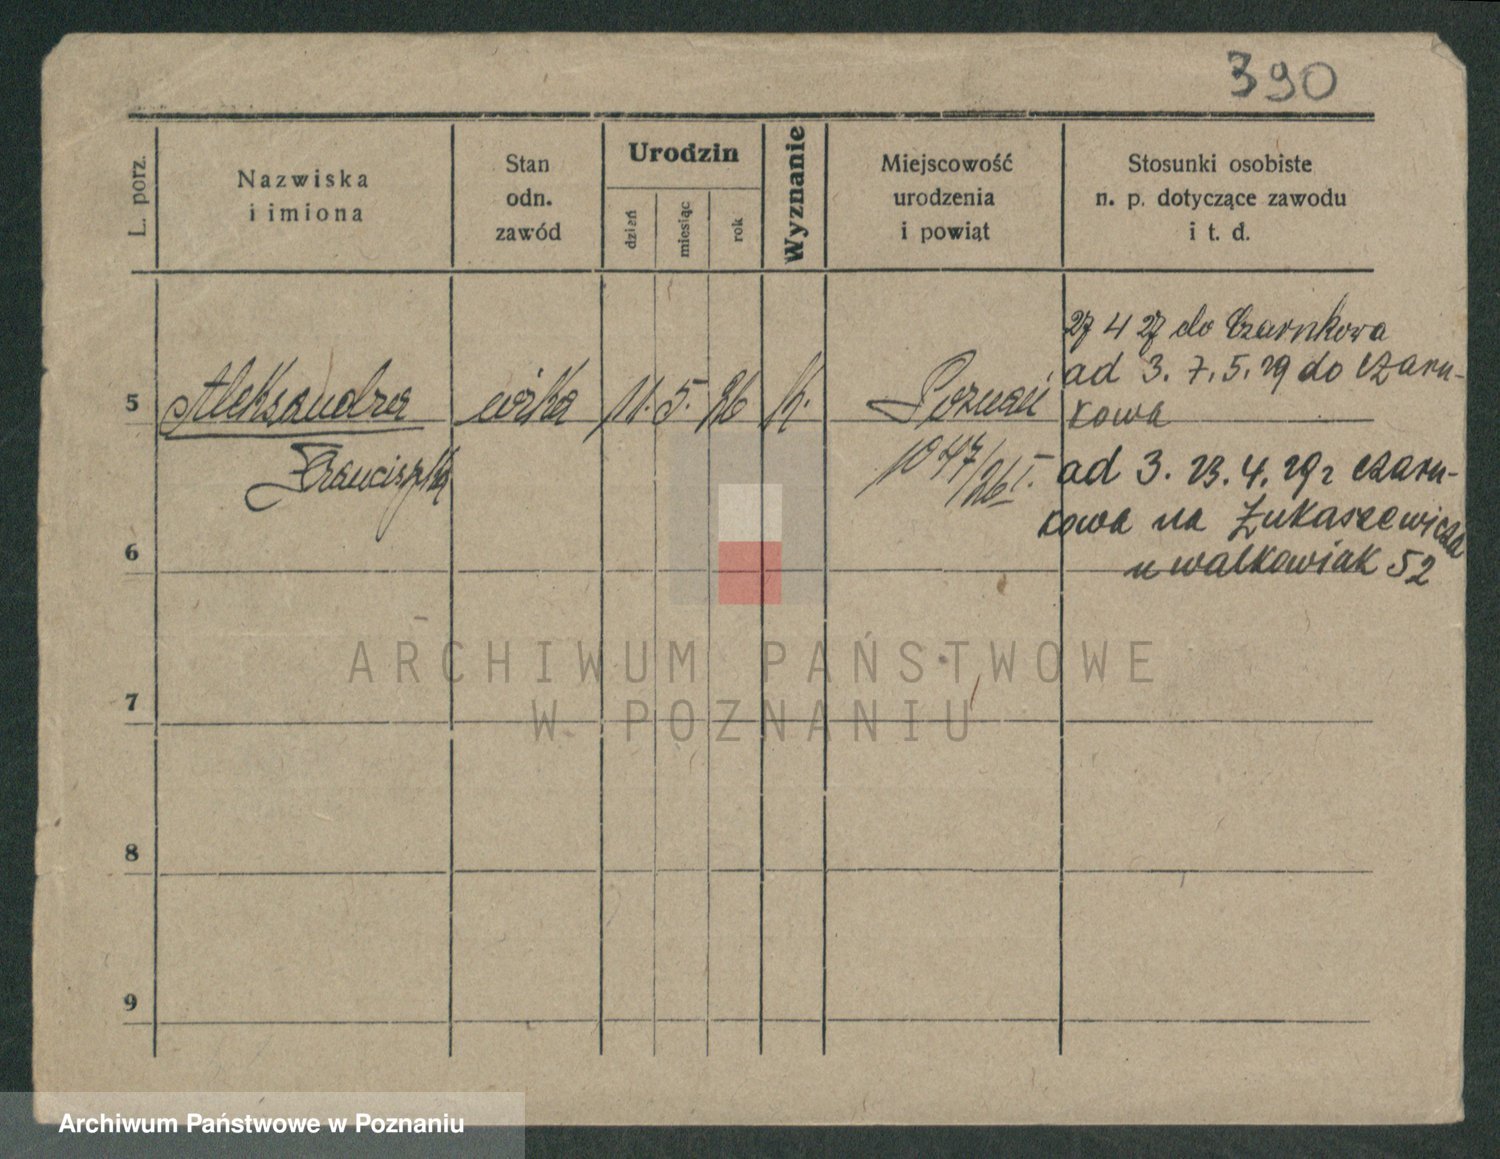 390
L. porz.
Nazwiska
i imiona
Stan
odn.
zawód
Urodzin
dzień
miesiąc
rok
Wyznanie
Miejscowość
urodzenia
i powiat
Stosunki osobiste
n. p. dotyczące zawodu
i t. d.
27 4 27 do Czarnkowa
ad 3. 7. 5. 29 do Czarn-
kowa
5 Aleksandra córka 11. 5. 26 k. Poznań
Franciszka
1047/26 I.
ad 3. 23. 4. 29 r Czarn-
kowa na Łukaszewicza
u Walkowiak 52
6
7
8
9
ARCHIWUM PAŃSTWOWE
W POZNANIU
Archiwum Państwowe w Poznaniu